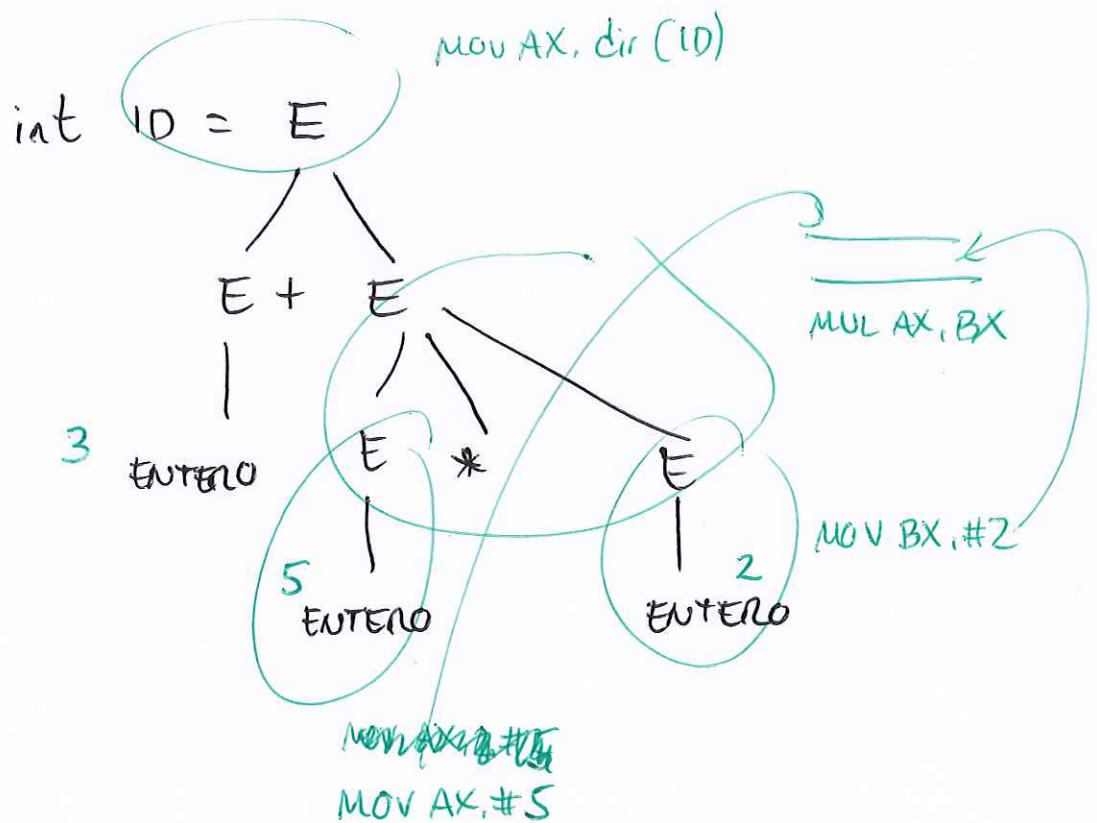 MOV AX, dir (ID)
int ID = E
E + E
MUL AX, BX
3 ENTERO
E * E
MOV BX, #2
5 ENTERO
2 ENTERO
MOV AX, #5